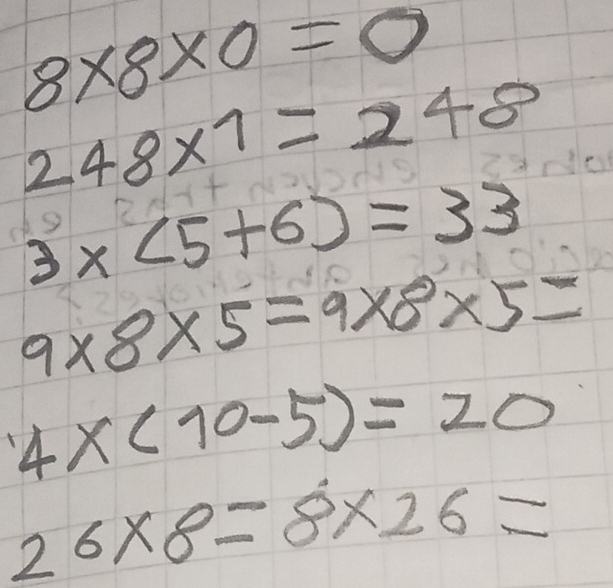 8×8×0=0
248×1=248
3×(5+6)=33
9×8×5=9×8×5=
4×(10-5)=20
26×8=8×26=